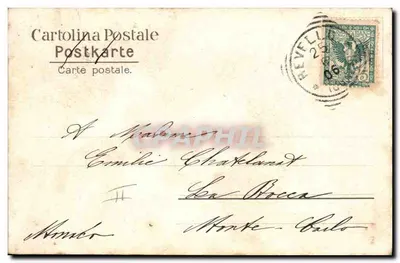 Cartolina Postale
Postkarte
Carte postale.
REVELLO
25
06
CARTE CPAPHIL
A Madame
Emilie Chatelanat
La Rocca
Monte-Carlo
Monaco
II